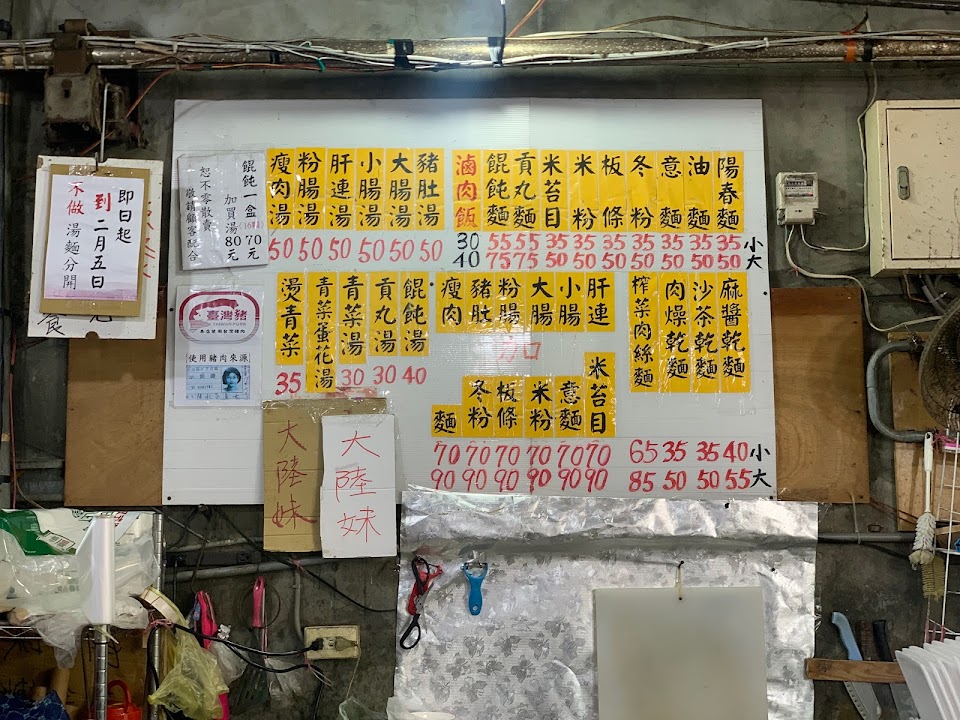 即日起
到二月五日
不做湯麵分開
陽春麵
油麵
意麵
冬粉
板條
米粉
米苔目
貢丸麵
餛飩麵
滷肉飯
30 55 55 35 35 35 35 35 35 35 小
40 75 75 50 50 50 50 50 50 50 大
豬肚湯
大腸湯
小腸湯
肝連湯
粉腸湯
瘦肉湯
50 50 50 50 50 50
餛飩一盒 70元
加買湯 80元
恕不零散賣
敬請顧客配合
麻醬乾麵
沙茶乾麵
肉燥乾麵
榨菜肉絲麵
65 35 35 40 小
85 50 50 55 大
肝連
小腸
大腸
粉腸
豬肚
瘦肉
加
米苔目
意麵
米粉
板條
冬粉
麵
70 70 70 70 70 70
90 90 90 90 90 90
餛飩湯
貢丸湯
青菜湯
青菜蛋花湯
燙青菜
35 30 30 40
臺灣豬
TAIWAN PORK
使用豬肉來源
大陸妹
大陸妹